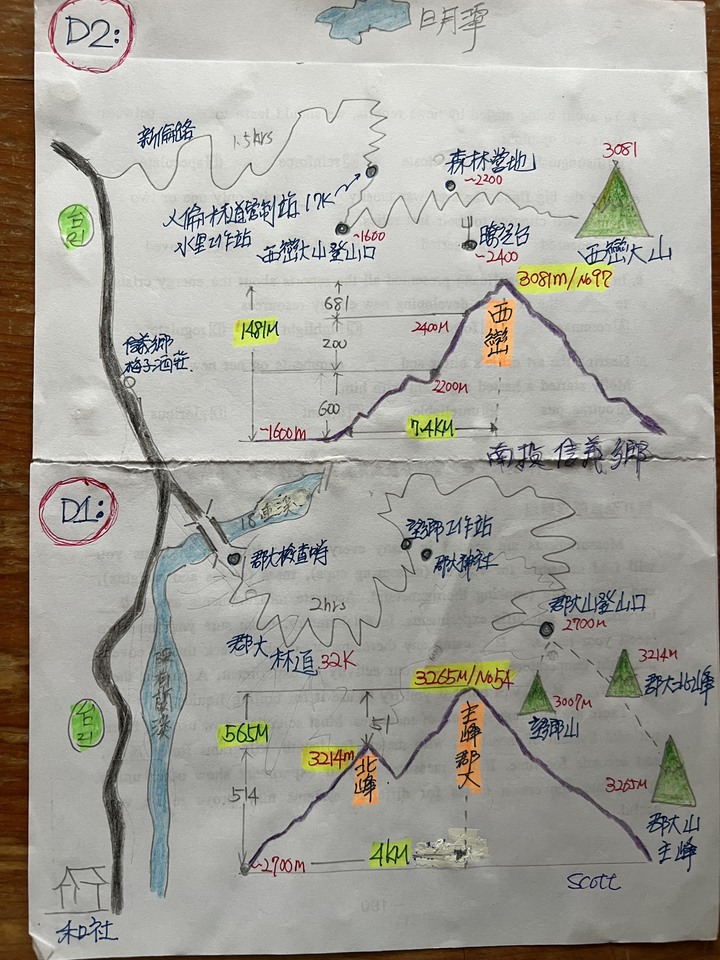 D2:
日月潭
新倫路
1.5hrs
人倫林道管制站 17K
水里工作站
森林營地
~2200
3081
台
21
西巒大山登山口
~1600
瞭望台
~2400
西巒大山
3081m/No97
681
1481M
2400M
西
巒
200
信義鄉
梅子酒莊.
2200M
600
~1600m
7.4KM
南投信義鄉
D1:
望鄉工作站
郡大檢查哨
郡大神社
2hrs
郡大山登山口
2700M
郡大
林道 32K
3265M/No54
3214M
郡大北峰
3007M
望鄉山
台
21
51
565M
主
峰
郡
大
3214m
北
峰
3265M
514
郡大山
主峰
4KM
~2700m
Scott
和社